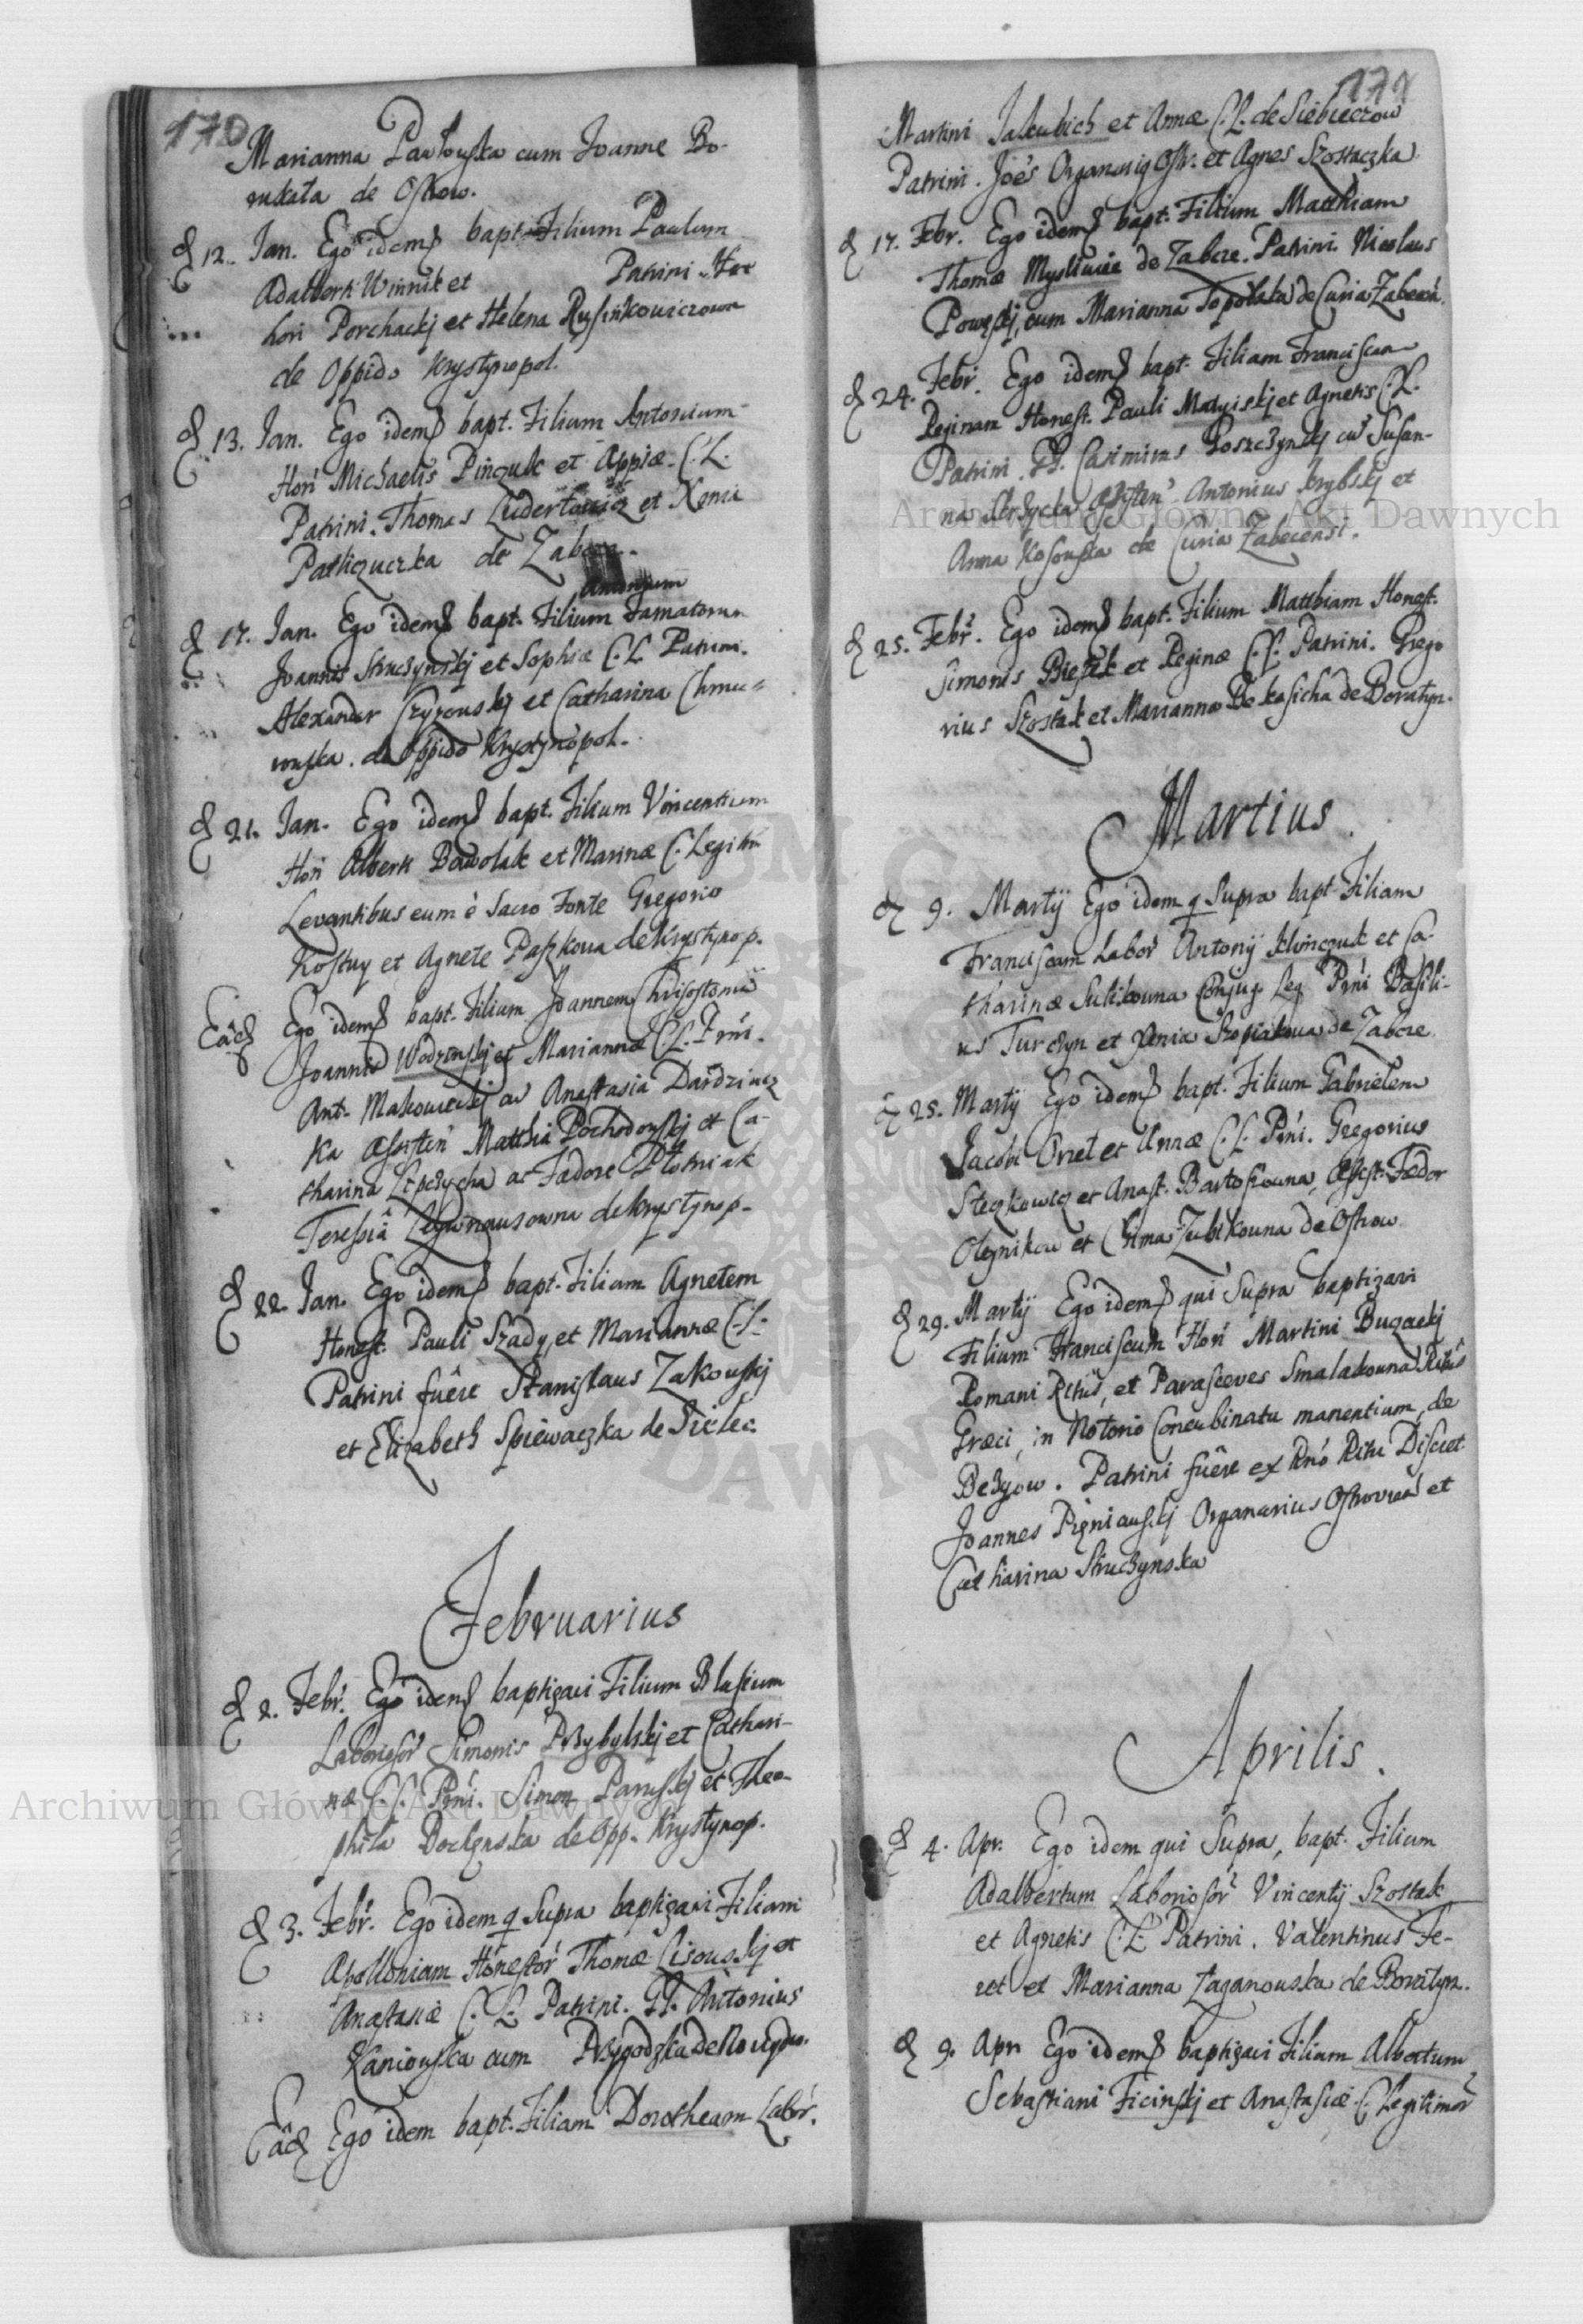 170
Marianna Pawłouska cum Joanne Bo-
rukata de Ostrow.
d 12. Jan. Ego idem bapt. Filium Paulum
Adalberti Winnik et Patrini
Porchackj et Helena Rusinkowiczowa
de Oppido Krystynopol.
d 13. Jan. Ego idem bapt. Filium Antonium
Hon Michaelis Pinczuk et Appiæ C. L.
Patrini. Thomas et Xenia
de Zabcze.
Antonium
d 17. Jan. Ego idem bapt. Filium Famatorum
Joannis Struczynskj et Sophiæ C. L. Patrini.
Alexander Czyzouskj et Catharina Chmu-
rouska. de Oppido Krystynopol.
d 21. Jan. Ego idem bapt. Filium Vincentium
Hon Alberti Bawolak et Marinæ C. Legitim
Levantibus eum è Sacro Fonte Gregorio
Kostuy et Agnete Paszkoua de Krystynop.
Eâd Ego idem bapt. Filium Joannem Chrisostomū
Joannis Wodzinskj et Mariannæ C. L. Prni.
Ant. Makowieckj ac Anastasia Dardzincz
ka Assisten Matthia Pochodouskj et Ca-
tharina ac Fædore Płotniak
Teressiâ de Krystynop.
d 22. Jan. Ego idem bapt. Filiam Agnetem
Honest. Pauli Szady, et Mariannæ C. L.
Patrini fuêre Stanislaus Zakouskj
et Elizabeth Spiewaczka de Sielec
Februarius
d 2. Febr. Ego idem baptizavi Filium Blasium
Laboriosor Simonis Przybylskj et Cathari-
næ C. L. Prni. Simon Paruskj et Theo-
phila de Opp. Krystynop.
d 3. Febr. Ego idem q Supra baptizavi Filiam
Apolloniam Honestor Thomæ Lisouskj et
Anastasiæ C. L. Patrini. G. Antonius
Kaniouska cum
Eâd Ego idem bapt. Filiam Dorotheam Labor.
171
Martini Jakubich et Annæ C. L. de Siebieczow
Patrini. Joēs Organariq Ostr. et Agnes Szostaczka
d 17. Febr. Ego idem bapt. Filium Matthiam
Thomæ Mysliwiec de Zabcze. Patrini. Nicolaus
Powzskj, cum Marianna Topolata de Curia Zabecen.
d 24. Febr. Ego idem bapt. Filiam Franciscam
Reginam Honest. Pauli Matyiskj et Agnetis C. L.
Patrini. G. Casimirus Roszczynskj cū Susan-
na Assisten Antonius Krybskj et
Anna Kosouska de Curia Zabecensi.
d 25. Febr. Ego idem bapt. Filium Matthiam Honest.
Simonis Bieszek et Reginæ C. L. Patrini. Grego
rius Szostak et Marianna Bekasicha de Boratyn.
Martius.
d 9. Martij Ego idem q Supra bapt Filiam
Franciscam Labor Antonij Klimczuk et Ca-
tharinæ Sulikouna Conjug. Leg Prni Basili-
us Turczyn et Xenia de Zabcze
d 25. Martij Ego idem bapt. Filium Gabrielem
Jacobi Orzel et Annæ C. L. Prni. Gregorius
Steczkowicz et Anast. Bartosiouna, Assist. Fædor
Oleynikow et Zubikouna de Ostrow
d 29. Martij Ego idem qui Supra baptizavi
Filium Franciscum Hon Martini Buzackj
Romani Ritûs, et Parasceves Smalakouna Ritûs
Græci, in Notorio Concubinatu manentium, de
Bezyow. Patrini fuêre ex Rno Ritu Discret
Joannes Pizniauskj Organarius Ostrovien et
Catharina Struczynska
Aprilis.
d 4. Apr. Ego idem qui Supra, bapt. Filium
Adalbertum Laboriosor Vincentij Szostak
et Agnetis C. L. Patrini. Valentinus Fe-
ret et Marianna Zaganouska de Boratyn.
d 9. Apr Ego idem baptizavi Filium Albertum
Sebastiani Ficinskj et Anastasiæ C. Legitimor
Archiwum Główne Akt Dawnych
Archiwum Główne Akt Dawnych